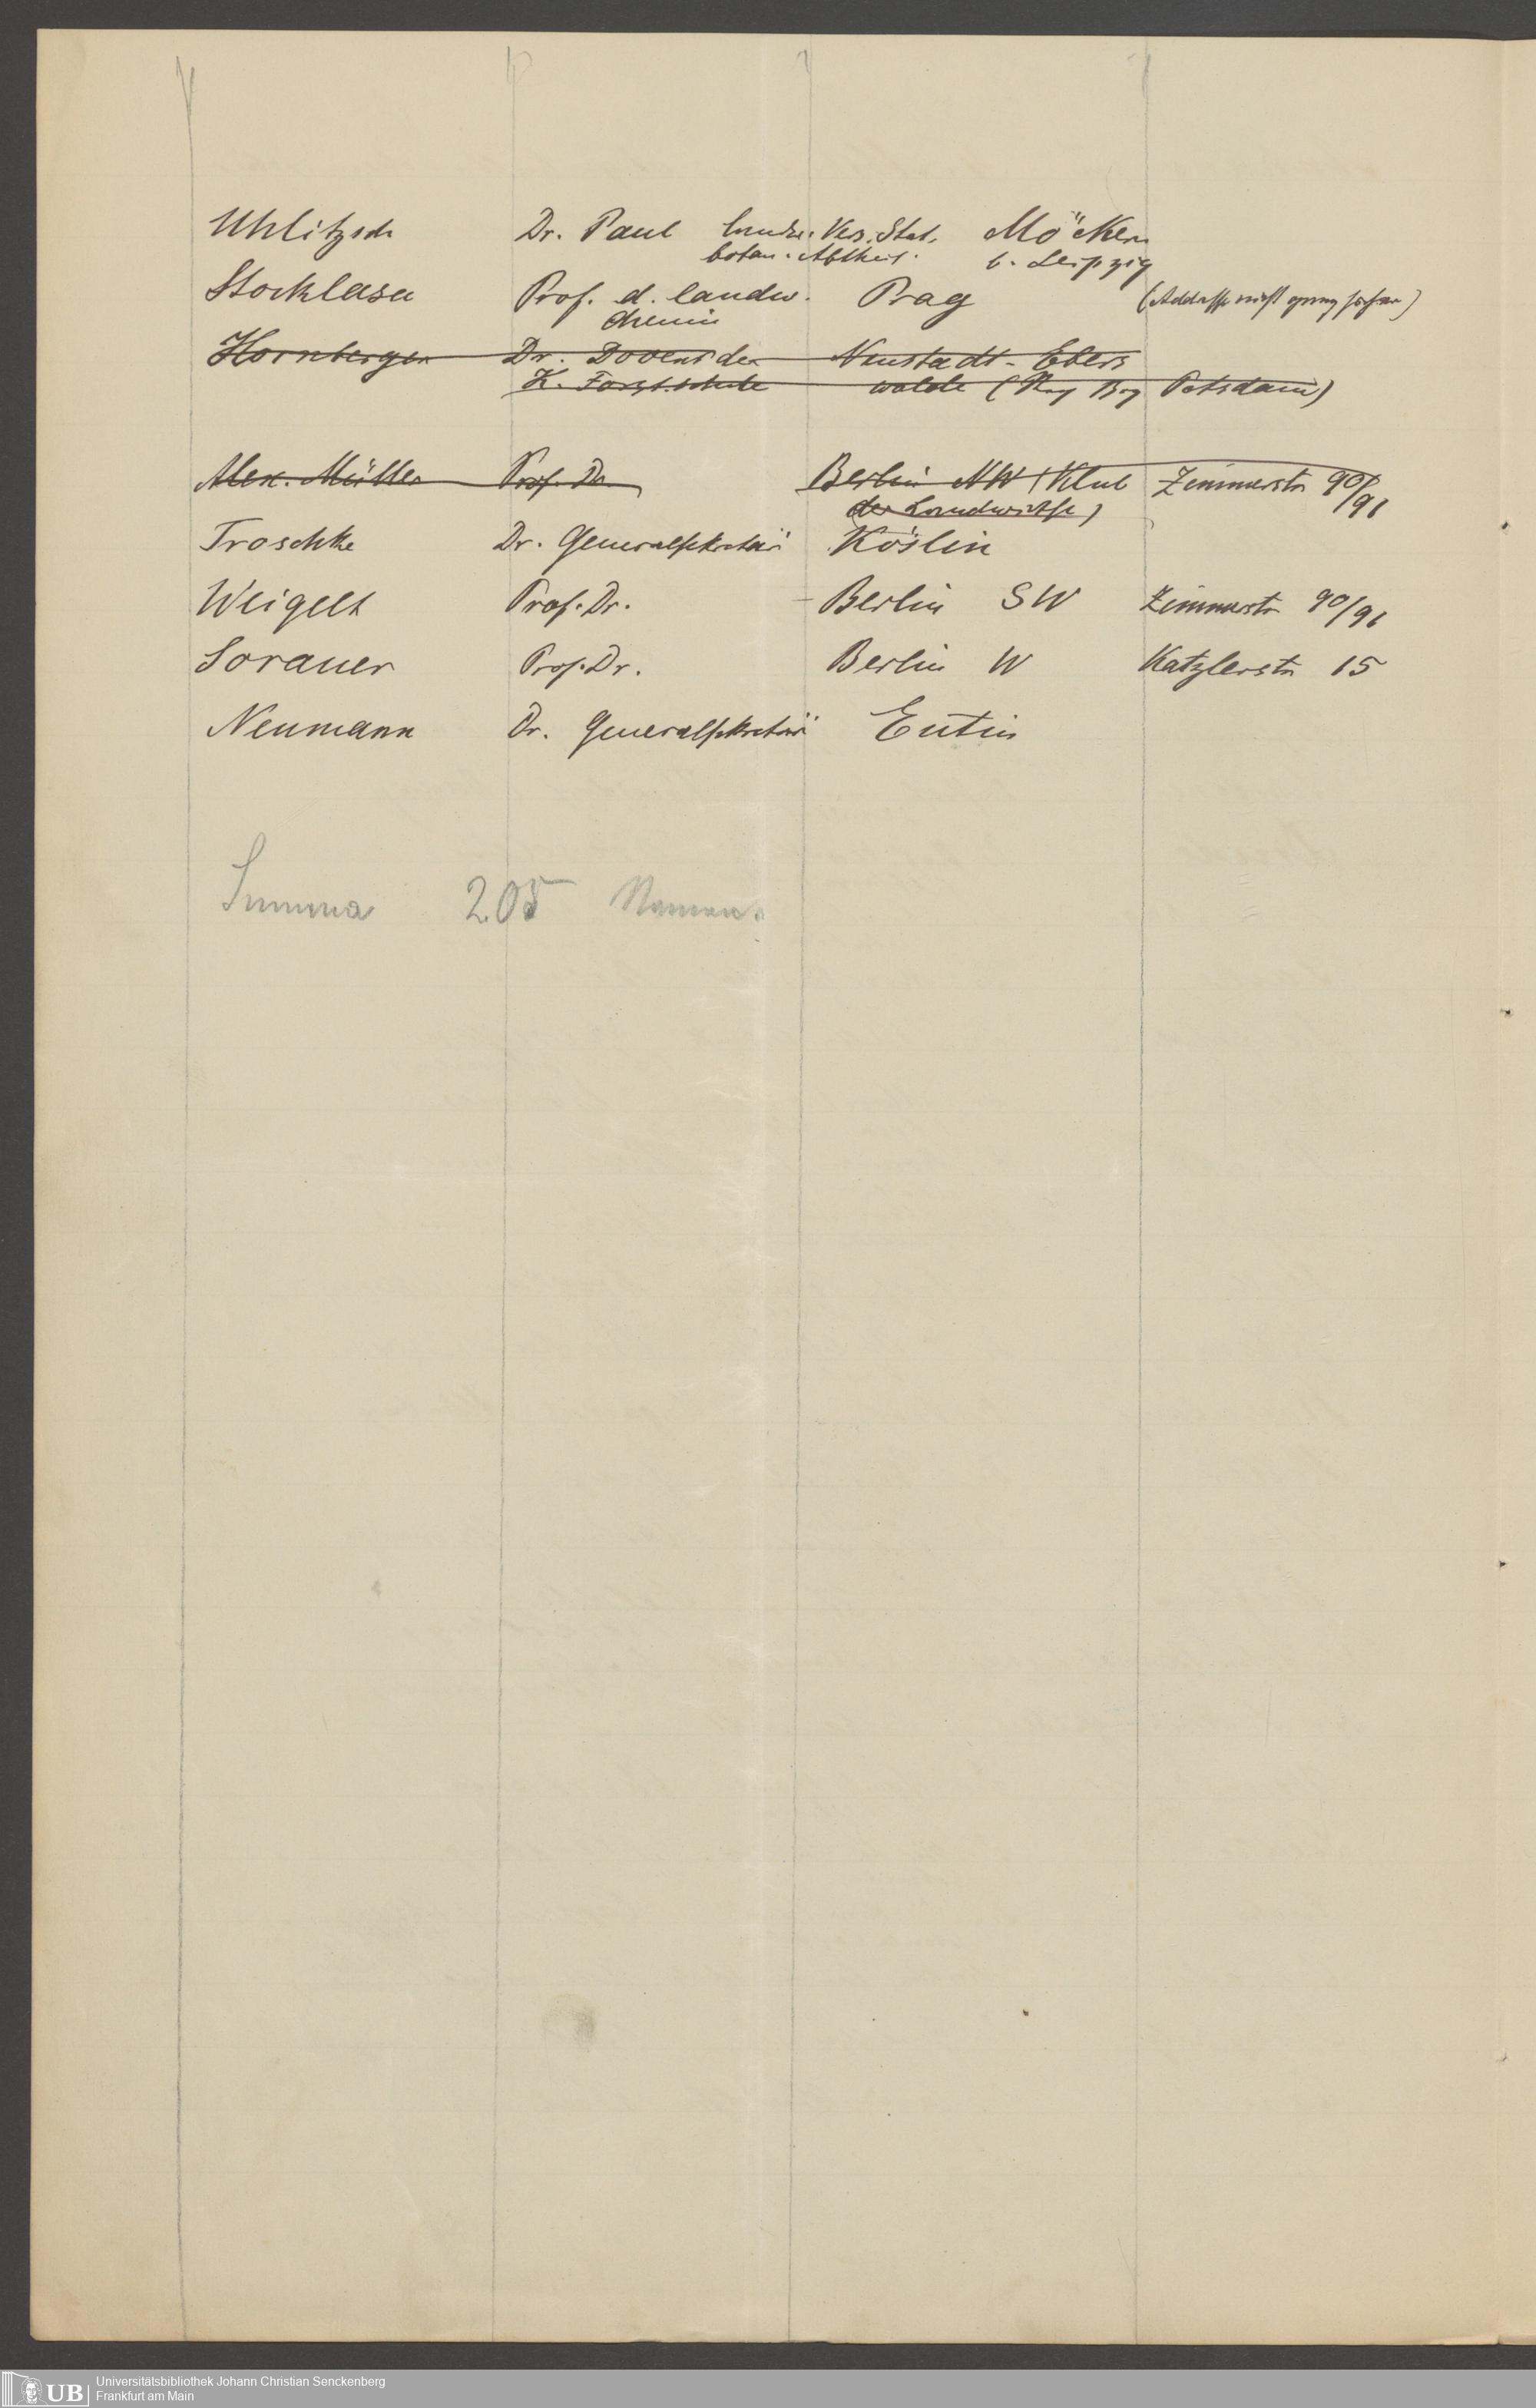 Uhlitzsch Dr. Paul landw. Vers. Stat. Möckern
botan. Abtheil. b. Leipzig
Stocklasa Prof. d. landw. Prag (Addresse nicht genug sicher)
Chemie
Hornberger Dr. Docent der Neustadt-Ebers
K. Forst.schule walde (Reg Bez Potsdam)
Alex. Müller Prof. Dr. Berlin NW (Klub Zimmerstr 90/91
der Landwirthe)
Troschke Dr. Generalsekretär Köslin
Weigelt Prof. Dr. Berlin SW Zimmerstr 90/91
Sorauer Prof. Dr. Berlin W Katzlerstr 15
Neumann Dr. Generalsekretär Eutin
Summa 205 Namen.
UB Universitätsbibliothek Johann Christian Senckenberg
Frankfurt am Main